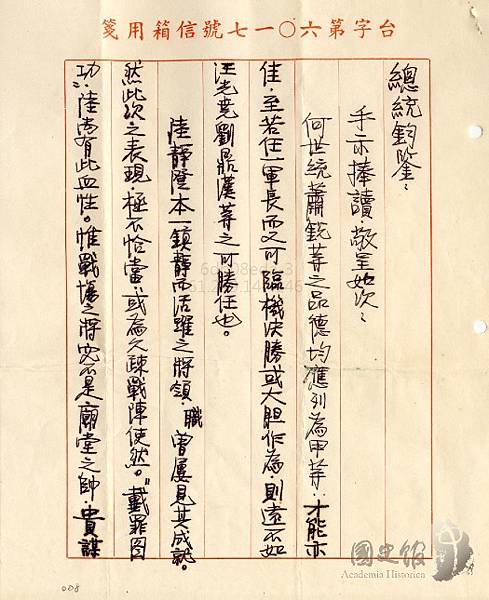 台字第六〇一七號信箱用箋
總統鈞鑒：
手示捧讀敬呈如次：
何世統蕭銳等之品德均應列為甲等：才能亦
佳．至若任一軍長而又可臨機決勝或大胆作為．則遠不如
汪光堯劉鼎漢等之可勝任也。
陸靜澄本一鎮靜而活躍之將領．職曾屢見其成就。
然此次之表現．極不恰當、或為久疎戰陣使然。"戴罪圖
功"陸尚有此血性。惟戰場之將究不是廟堂之帥．貴謀
國史館
Academia Historica
008